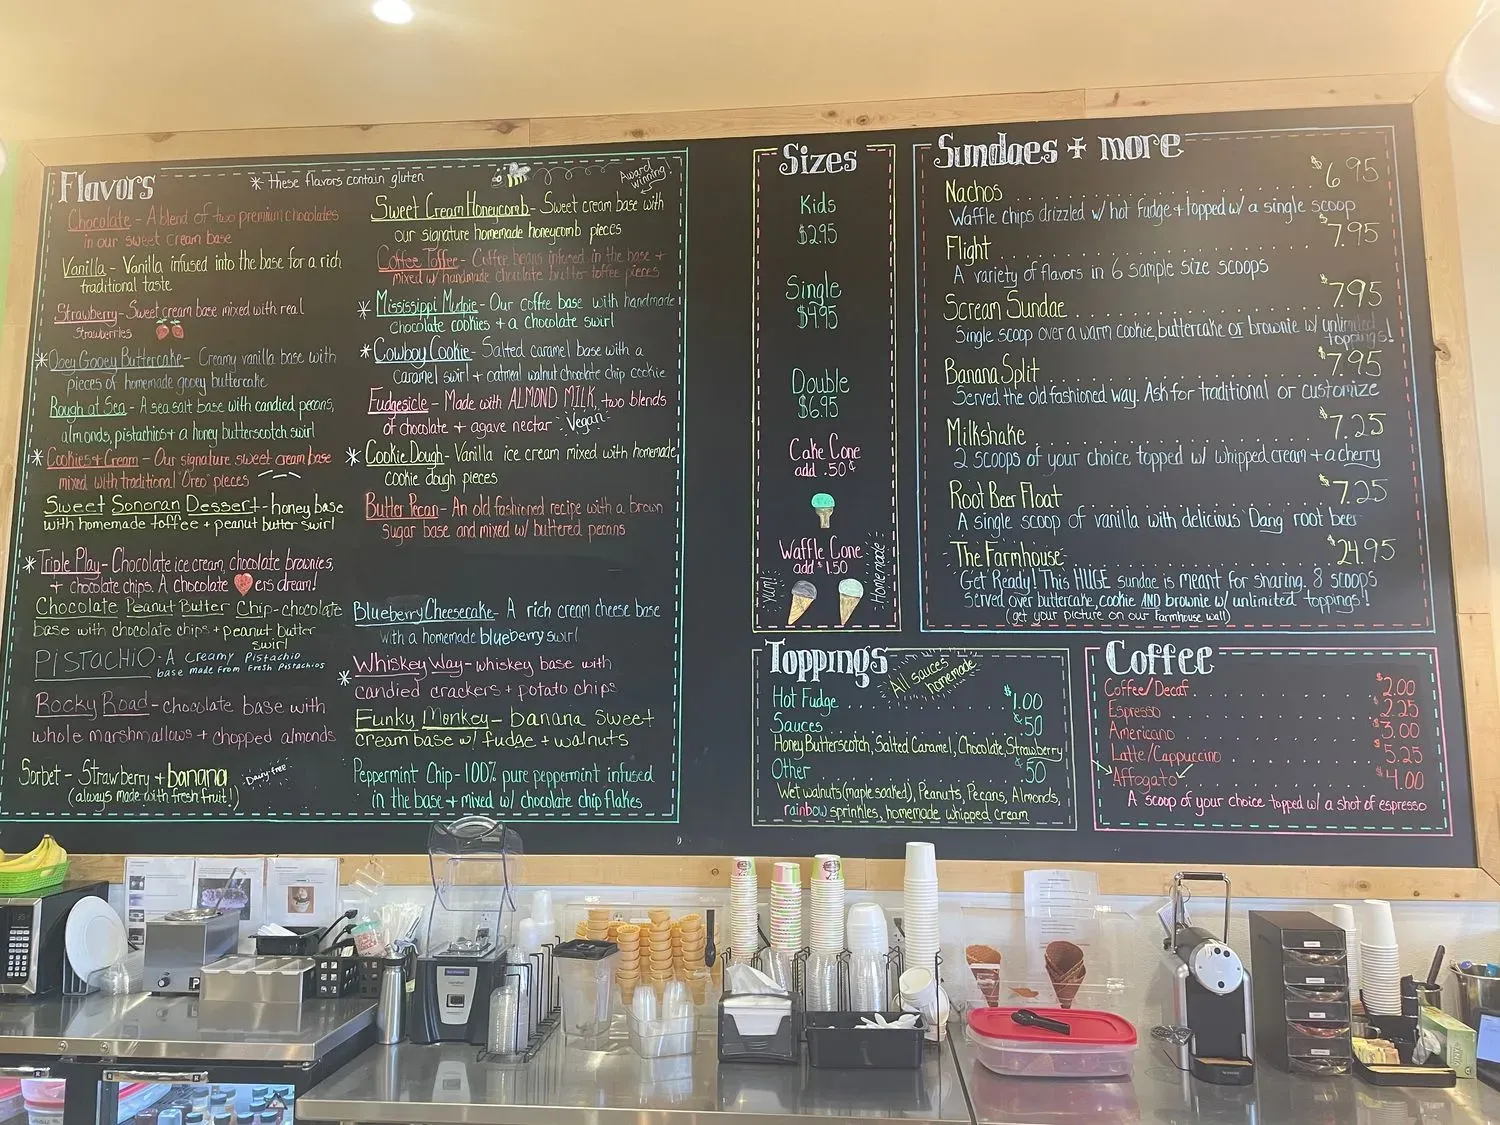 Flavors
* these flavors contain gluten
Chocolate - A blend of two premium chocolates
in our sweet cream base
Vanilla - Vanilla infused into the base for a rich
traditional taste
Strawberry - Sweet cream base mixed with real
Strawberries
* Ooey Gooey Buttercake - Creamy vanilla base with
pieces of homemade gooey buttercake
Rough at Sea - A sea salt base with candied pecans,
almonds, pistachios + a honey butterscotch swirl
* Cookies + Cream - Our signature sweet cream base
mixed with traditional "Oreo" pieces
Sweet Sonoran Dessert - honey base
with homemade toffee + peanut butter swirl
* Triple Play - Chocolate ice cream, chocolate brownies,
+ chocolate chips. A chocolate ers dream!
Chocolate Peanut Butter Chip - chocolate
base with chocolate chips + peanut butter
swirl
PISTACHIO - A creamy Pistachio
base made from fresh Pistachios
Rocky Road - chocolate base with
whole marshmallows + chopped almonds
Sorbet - Strawberry + banana
Dairy-free
(always made with fresh fruit!)
Award
winning
Sweet Cream Honeycomb - Sweet cream base with
our signature homemade honeycomb pieces
Coffee Toffee - Coffee beans infused in the base +
mixed w/ handmade chocolate butter toffee pieces
* Mississippi Mudpie - Our coffee base with handmade
chocolate cookies + a chocolate swirl
* Cowboy Cookie - Salted caramel base with a
caramel swirl + oatmeal walnut chocolate chip cookie
Fudgesicle - Made with ALMOND MILK, two blends
of chocolate + agave nectar -Vegan-
* Cookie Dough - Vanilla ice cream mixed with homemade
cookie dough pieces
Butter Pecan - An old fashioned recipe with a brown
sugar base and mixed w/ buttered pecans
Blueberry Cheesecake - A rich cream cheese base
with a homemade blueberry swirl
* Whiskey Way - whiskey base with
candied crackers + potato chips
Funky Monkey - banana sweet
cream base w/ fudge + walnuts
Peppermint Chip - 100% pure peppermint infused
in the base + mixed w/ chocolate chip flakes
Sizes
Kids
$2.95
Single
$4.95
Double
$6.95
Cake Cone
add .50¢
Waffle Cone
add $1.50
Yum!
Homemade
Sundaes + more
Nachos $6.95
Waffle chips drizzled w/ hot fudge + topped w/ a single scoop
Flight $7.95
A variety of flavors in 6 sample size scoops
Scream Sundae $7.95
Single scoop over a warm cookie, buttercake or brownie w/ unlimited
toppings!
Banana Split $7.95
Served the old fashioned way. Ask for traditional or customize
Milkshake $7.25
2 scoops of your choice topped w/ whipped cream + a cherry
Root Beer Float $7.25
A single scoop of vanilla with delicious Dang root beer
-The Farmhouse- $24.95
Get Ready! This HUGE sundae is meant for sharing. 8 scoops
served over buttercake, cookie AND brownie w/ unlimited toppings!!
(get your picture on our Farmhouse wall)
Toppings
All sauces
homemade
Hot Fudge $1.00
Sauces .50
Honey Butterscotch, Salted Caramel, Chocolate, Strawberry
Other .50
Wet walnuts (maple soaked), Peanuts, Pecans, Almonds,
rainbow sprinkles, homemade whipped cream
Coffee
Coffee/Decaf $2.00
Espresso $2.25
Americano $3.00
Latte/Cappuccino $5.25
Affogato $4.00
A scoop of your choice topped w/ a shot of espresso